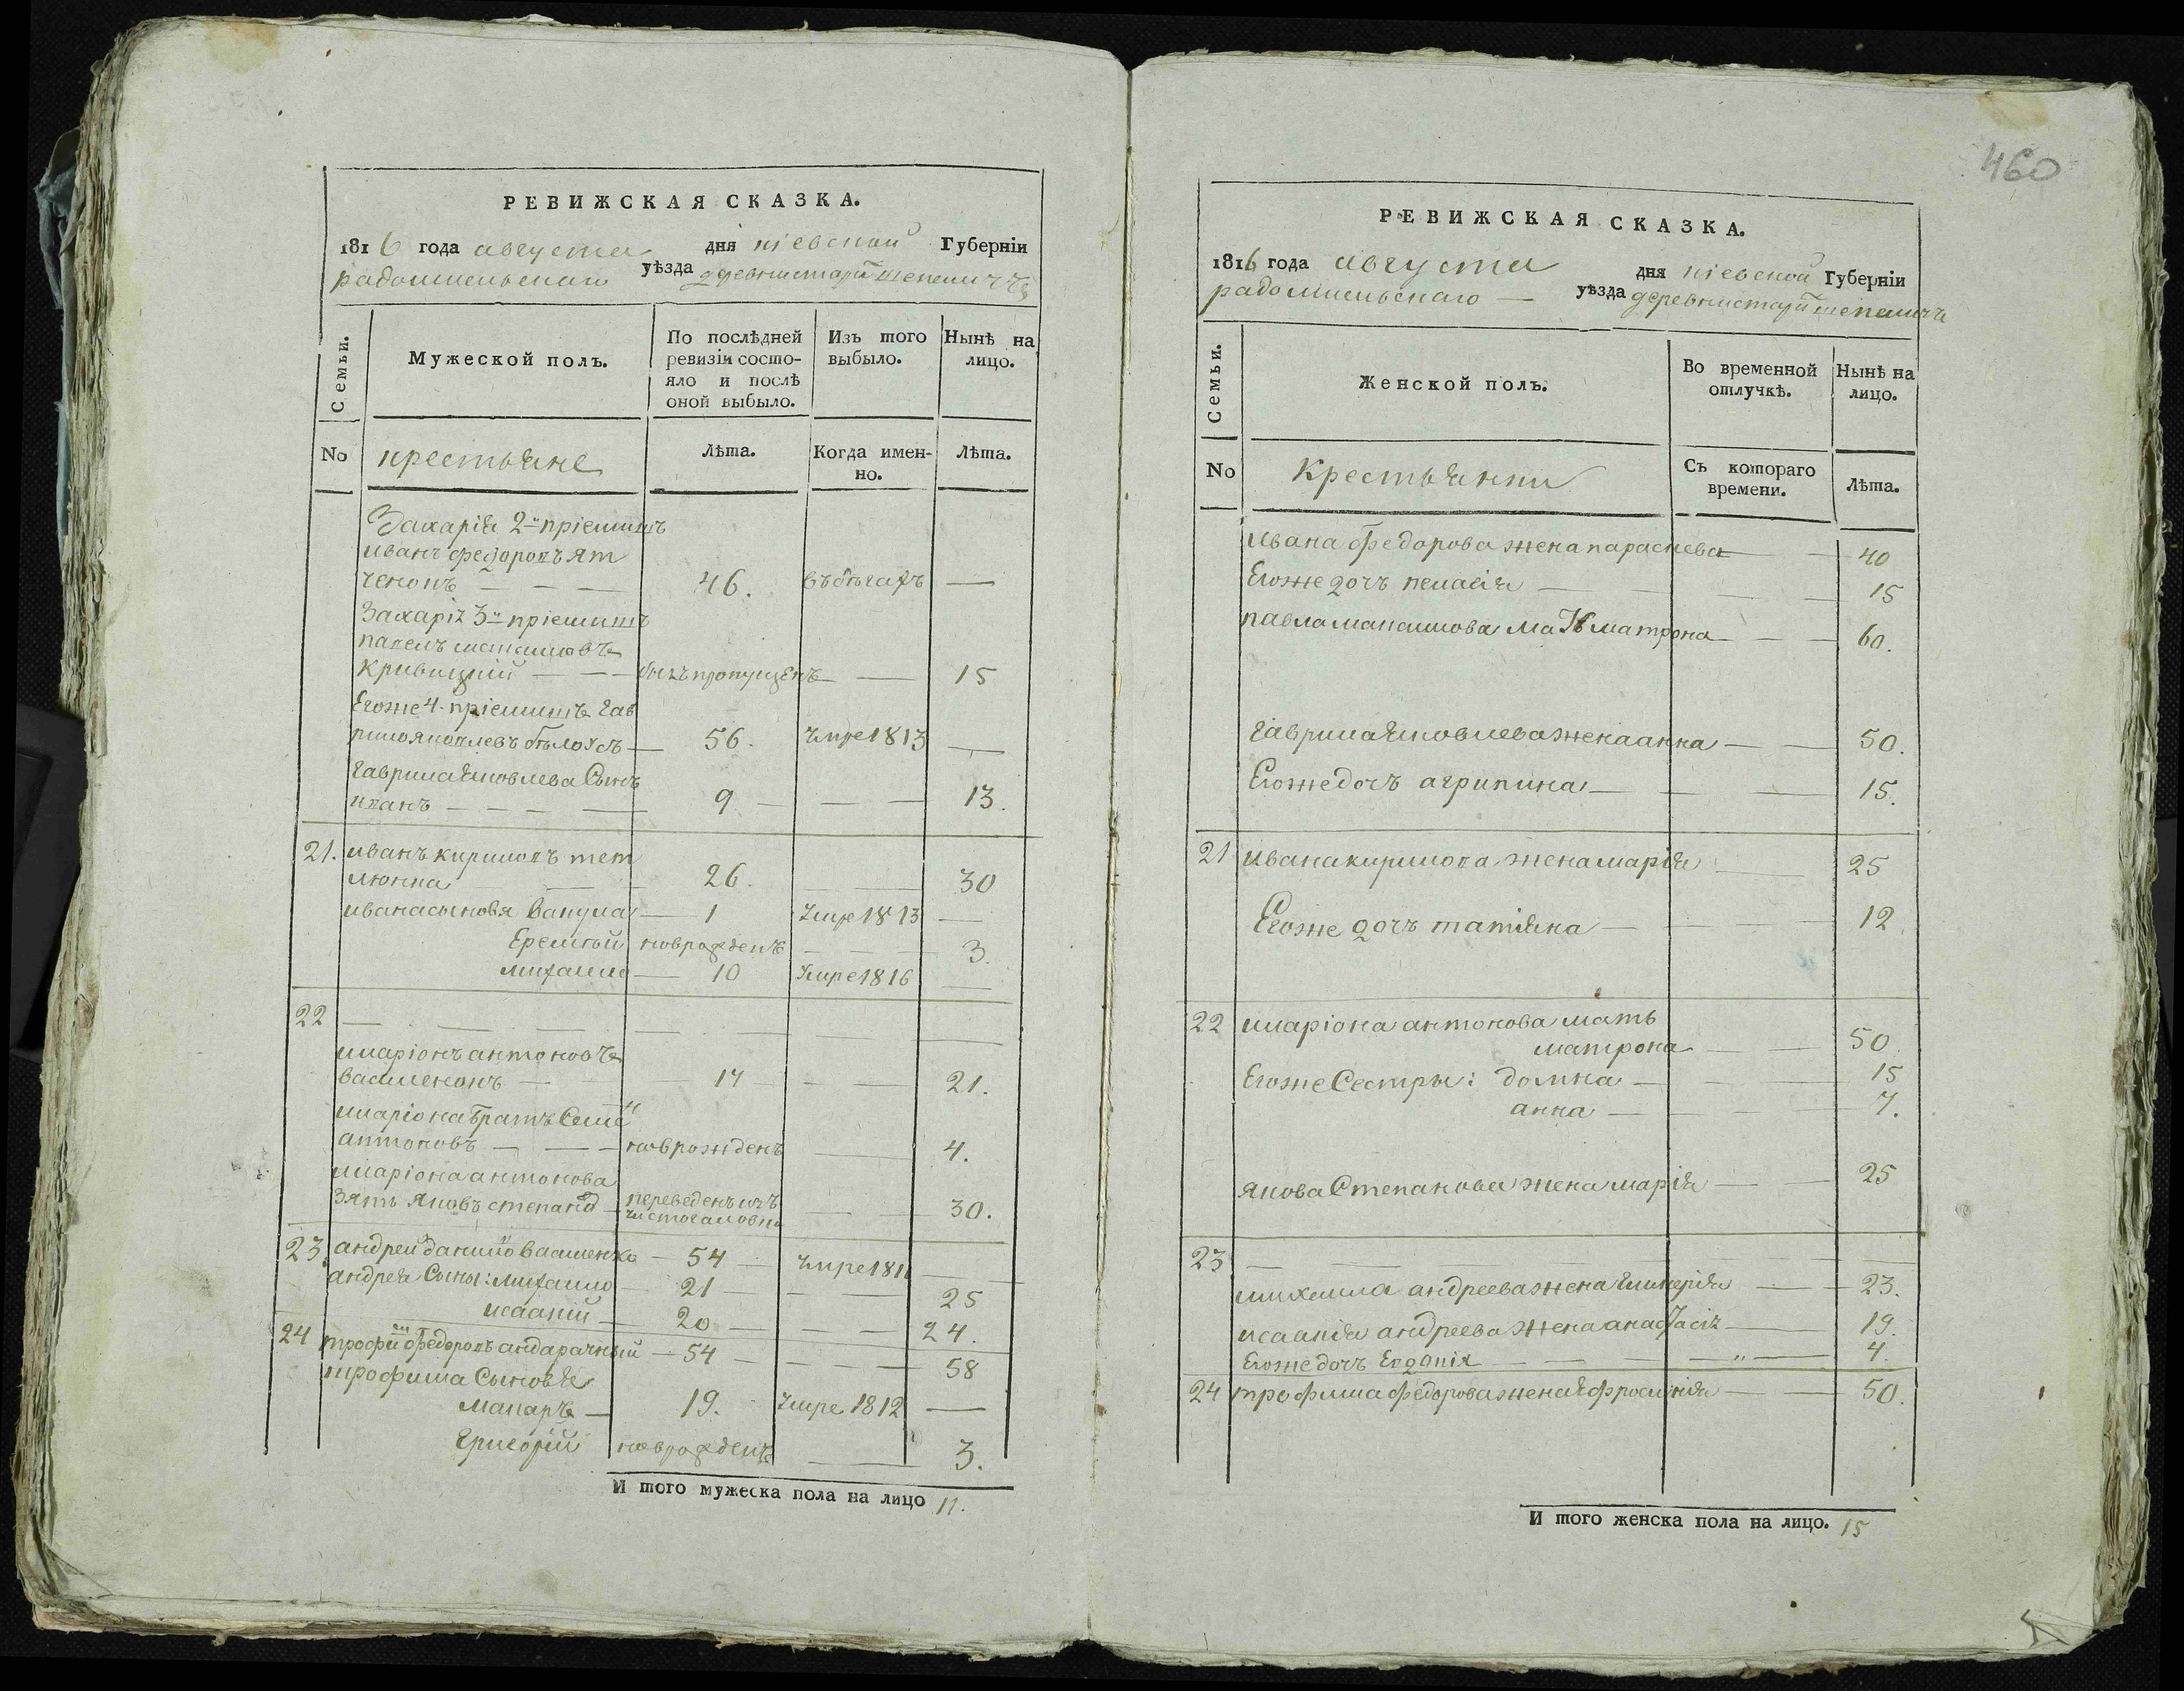 460
РЕВИЖСКАЯ СКАЗКА.
1816 года августа дня кіевской Губерніи
радомисльскаго уѣзда деревни старой шепеличъ
Семьи.
Мужеской полъ.
По послѣдней ревизіи состо-
яло и послѣ
оной выбыло.
Изъ того
выбыло.
Нынѣ на
лицо.
No крестьяне
Лѣта.
Когда имен-
но.
Лѣта.
Захарія 2й пріемишъ
иванъ федоровъ ят
ченокъ — 46. въ бѣгахъ —
Захарія 3й пріемишъ
павелъ
кривицкий — былъ пропущенъ — 15
Егоже 4. пріемишъ гав
рило яковлевъ бѣлоусъ — 56. умре 1813 —
гаврила яковлева Сынъ
иванъ — 9. — 13.
21. иванъ кириловъ тет
люнка — 26. — 30
ивана сыновя вакула — 1 умре 1813 —
Еремѣй новрожденъ — 3.
михаило — 10 умре 1816 —
22 — — —
иларіонъ антоновъ
василенокъ — 17 — 21.
иларіона братъ
антоновъ — новрожденъ — 4.
иларіона антонова
зять яковъ степанов переведенъ изъ
чистогаловки — 30.
23. андрей данилов василенко — 54 — умре 1811 —
андрея Сыны: михаило — 21 — 25
исаакий — 20 — 24.
24 трофим федоровъ андарачный — 54 — 58
трофима Сыновья
макаръ — 19. умре 1812 —
григорий новрожденъ — 3.
И того мужеска пола на лицо 11.
РЕВИЖСКАЯ СКАЗКА.
1816 года августа дня кіевской Губерніи
радомисльскаго — уѣзда деревни старой шепеличъ
Семьи.
Женской полъ.
Во временной
отлучкѣ.
Нынѣ на
лицо.
No Крестьянки
Съ котораго
времени.
Лѣта.
ивана федорова жена параскева — 40
Егоже дочъ пелагія — 15
павла макаимова мать матрона — 60.
гаврила яковлева жена анна — 50.
Егоже дочъ агрипина — 15.
21 ивана кирилова жена марія — 25
Егоже дочъ татіяна — 12
22 иларіона антонова мать
матрона — 50.
Егоже Сестры: домна — 15
анна — 7.
якова Степанова жена марія — 25
23. — — —
михаила андреева жена гликерія — 23.
исаакія андреева жена анастасія — 19.
Егоже дочъ Евдокія — " — 4.
24 трофима федорова жена ефросинія — 50.
И того женска пола на лицо. 15